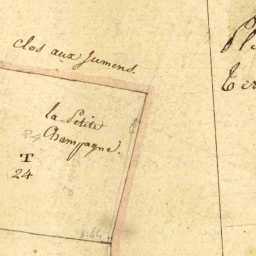 clos aux Jumens.
la Petite
Champagne.
T
24